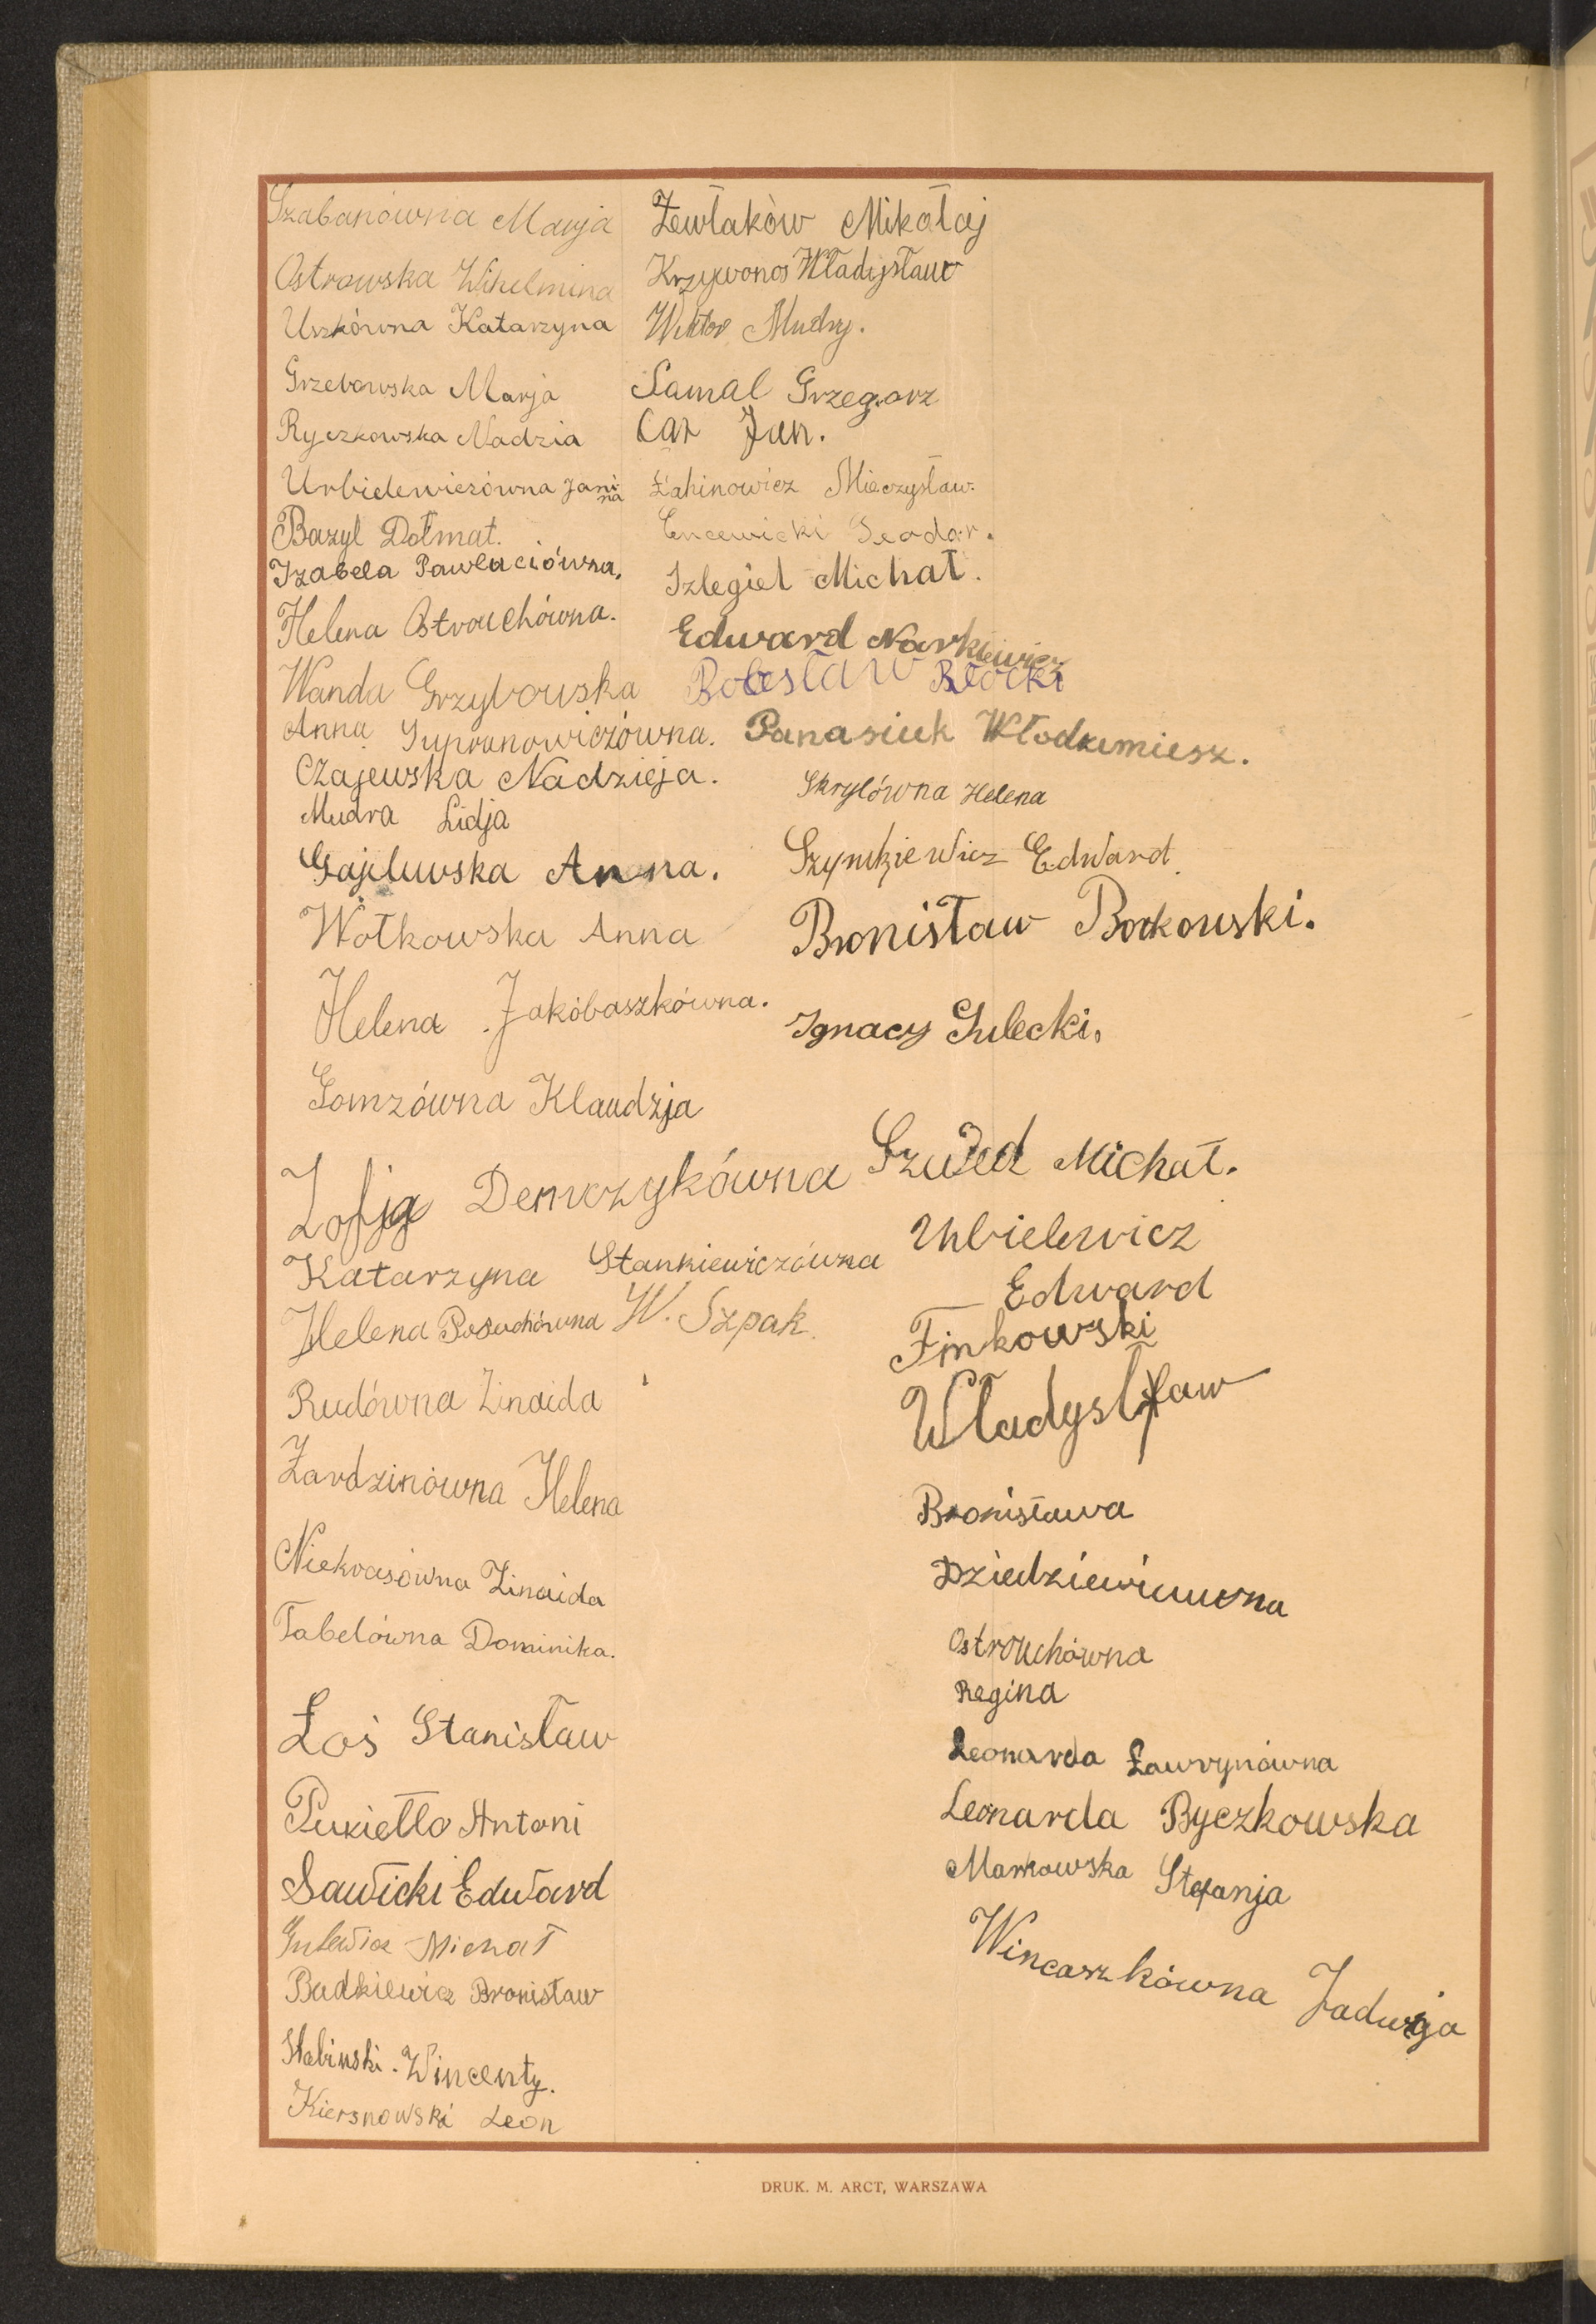 Szabanówna Marja
Ostrowska Wihelmina
Uszkówna Katarzyna
Grzebowska Marja
Ryczkowska Nadzia
Urbidewiczówna Janina
Bazyl Dołmat.
Izabela Pawluciówna.
Helena Ostrouchówna.
Wanda Grzybowska
Anna Supranowiczówna.
Czajewska Nadzieja.
Mudra Lidja
Gajelwska Anna.
Wołkowska Anna
Helena Jakóbaszkówna.
Gomzówna Klaudzja
Zofja Demczykówna
Katarzyna Stankiewiczówna
Helena Posuchówna W. Szpak.
Rudówna Zinaida
Zardzinówna Helena
Niekrasówna Zinaida
Tabelówna Dominika.
Łoś Stanisław
Pukiełło Antoni
Sawicki Edward
Gulewicz Michał
Budkiewicz Bronisław
Słabinski. Wincenty.
Kiersnowski Leon
Żewłaków Mikołaj
Krzywonos Władysław
Wiktor Mudry.
Samal Grzegorz
Car Jan.
Łahinowicz Mieczysław.
Encewicki Teodor.
Szlegiel Michał.
Edward Narkiewicz
Bolesław Błocki
Panasiuk Włodzimiesz.
Skrylówna Helena
Szymkiewicz Edward.
Bronisław Borkowski.
Ignacy Gulecki.
Szwed Michał.
Urbielewicz
Edward
Finkowski
Władysław
Bronisława
Ostrouchówna
Regina
Leonarda Ławrynówna
Leonarda Byczkowska
Markowska Stefanja
Wincaszkówna Jadwiga
DRUK. M. ARCT, WARSZAWA